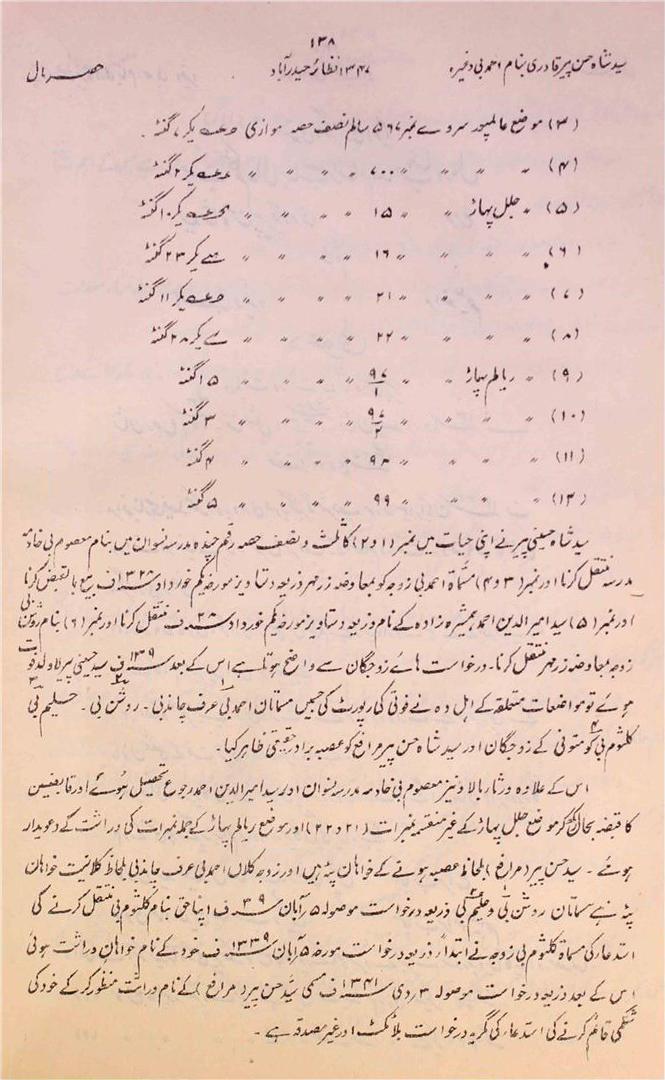 ۱۳۸
سید شاہ حسن پیر قادری بنام احمد بی وغیرہ ۱۳۴۷ نظائر حیدرآباد حصہ مال
(۳) موضع عالمپور سروے نمبر ۵۶۷ سالم نصف حصہ موازی یکر ۷ گنٹہ۔
(۴) " " " " ۷۰۰ " " " " یکر ۲ گنٹہ
(۵) " جلل پہاڑ " " ۱۵ " " " " یکر ۱۰ گنٹہ
(۶) " " " " ۱۶ " " " " یکر ۲۳ گنٹہ
(۷) " " " " ۲۱ " " " " یکر ۱۱ گنٹہ
(۸) " " " " ۲۲ " " " " یکر ۲۸ گنٹہ
(۹) " ریالم پہاڑ " " ۹۷/۱ " " " " ۱۵ گنٹہ
(۱۰) " " " " ۹۷/۲ " " " " ۳ گنٹہ
(۱۱) " " " " ۹۸ " " " " ۴ گنٹہ
(۱۲) " " " " ۹۹ " " " " ۵ گنٹہ
سید شاہ حسینی پیر نے اپنی حیات میں نمبر (۱ و ۲) کا ثلث و نصف حصہ رقم چندہ مدرسہ نسوان میں بنام معصوم بی خادمہ
مدرسہ منتقل کرنا اور نمبر (۳ و ۴) مسماۃ احمد بی زوجہ کو بمعاوضہ زر مہر ذریعہ دستاویز مورخہ یکم خورداد ۱۳۲۸ ف بیع بالقبض کرنا
اور نمبر (۵) سید امیر الدین احمد ہمشیرہ زادہ کے نام ذریعہ دستاویز مورخہ یکم خورداد ۲۸ ف منتقل کرنا اور نمبر (۶) بنام روشن بی
زوجہ بمعاوضہ زر مہر منتقل کرنا۔ درخواست ہائے زوجگان سے واضح ہوتا ہے اس کے بعد ۱۳۳۹ ف سید حسینی پیر لا ولد فوت
ہوئے تو مواضعات متعلقہ کے اہل دہ نے فوتی کی رپورٹ کی جسمیں مسماتان احمد بی عرف چاند بی۔ روشن بی۔ حلیم بی
کلثوم بی کو متوفی کے زوجگان اور سید شاہ حسن پیر مرافع کو عصبہ برادر حقیقی ظاہر کیا۔
اس کے علاوہ ورثاء بالا و نیز معصوم بی خادمہ مدرسہ نسوان اور سید امیر الدین احمد رجوع تحصیل ہوئے اور قابضین
کا قبضہ بحال رکھکر موضع جلل پہاڑ کے غیر منفسرہ نمبرات (۲۱ و ۲۲) اور موضع ریالم پہاڑ کے جملہ نمبرات کی وراثت کے دعویدار
ہوئے۔ سید حسن پیر (مرافع) بلحاظ عصبہ ہونے کے خواہان پٹہ ہیں اور زوجہ کلاں احمد بی عرف چاند بی بلحاظ کلانیت خواہان
پٹہ ہے مسماتان روشن بی و حلیم بی ذریعہ درخواست موصولہ ۵ آبان ۳۹ ف اپنا حق بنام کلثوم بی منتقل کرنے کی
استدعا کی مسماۃ کلثوم بی زوجہ نے ابتداً ذریعہ درخواست مورخہ ۵ آبان ۱۳۳۹ ف خود کے نام خواہان وراثت ہوئی
اس کے بعد ذریعہ درخواست موصولہ ۳ دی ۱۳۴۱ ف مسمی سید حسن پیر (مرافع) کے نام وراثت منظور کر کے خود کی
شکمی قائم کرنے کی استدعاء کی مگر یہ درخواست بلا ٹکٹ اور غیر مصدقہ ہے۔